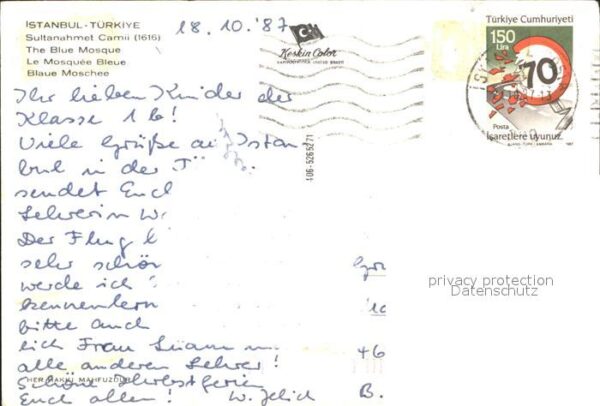 İSTANBUL - TÜRKİYE
Sultanahmet Camii (1616)
The Blue Mosque
Le Mosquée Bleue
Blaue Moschee
18.10.'87
Keskin Color
Türkiye Cumhuriyeti
150
Lira
70
Posta
İşaretlere uyunuz
1987
406-5265271
Ihr lieben Kinder der
Klasse 1b!
Viele Grüße au Istan
bul in der T
sendet Euch
Lehrerin W.
Der Flug
sehr schön
werde ich
kennenlern
bitte auch
lich Frau
alle anderen Lehrer!
Schöne Herbstferien
Euch allen! W. Jelich
46
B.
HER HAKKI MAHFUZDUR
privacy protection
Datenschutz